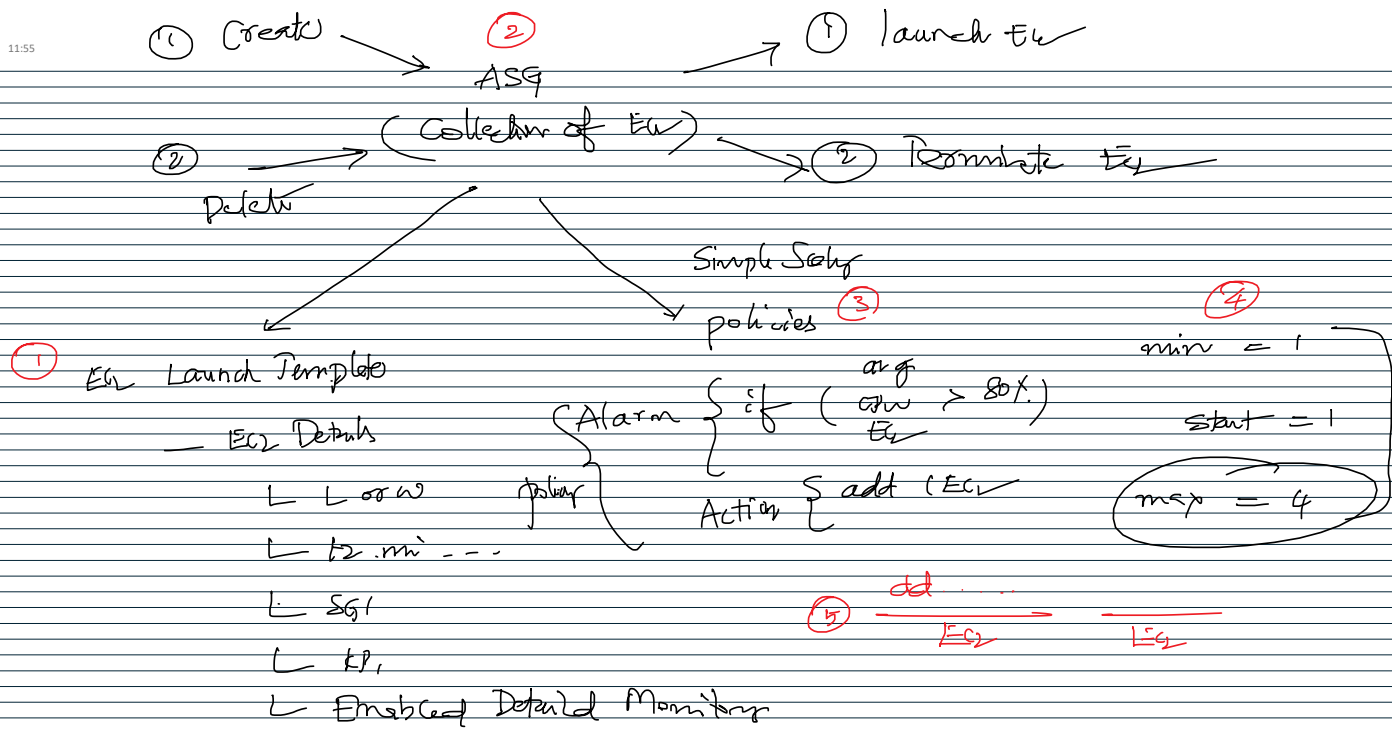 11:55
① Create
② 
ASG
① launch EC2
(Collection of EC2)
② Delete
② Terminate EC2
Simple Scaling
policies ③
④
min = 1
start = 1
max = 4
① EC2 Launch Template
— EC2 Details
L or W
t2.mi - - -
SG1
KP1
Enabled Detaild Monitoring
policy
Alarm { if ( avg cpu EC2 > 80%. )
Action { add 1 EC2
⑤ dd ......
EC2
EC2